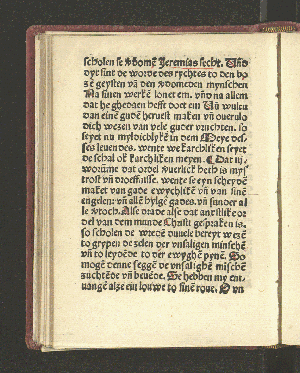 scholen se vdomē Jeremias secht. Vñ
dyt sint de worde des rychtes to den bo
zē geysten vn̄ den vdomeden mynschen
Na sinen werkē lonet em. vn̄ na allem
dat he ghedaen hefft doet em Vn̄
dan eine gudē heruest maken vn̄
dich wezen van vele guder vruchten. so
seyet nu myldichlykē in dem Meye des-
ses leuendes. wente we karchliken seyet
de schal ok karchliken meyen. Dat iij.
worumme dat ordel is mys
trost vn̄ wente se eyn scheydē
maket van gade ewychlikē vn̄ van sinē
engelen. vn̄ allē hylge gades. vn̄ sunder al
le troch. Alse drade alse dat anxstlike or
del van dem munde Christi gespraken is.
so scholen de wredē duuele bereyt wezē
to grypen de zelen der vnsaligen minschē
vn̄ to leydēde to der ewyghē pynē. So
mogē denne seggē de vnsalighē mīschē
suchtēde vn̄ beuēde. Se hebben my ent
uangē alze ein louwe to sinē roue. O vn